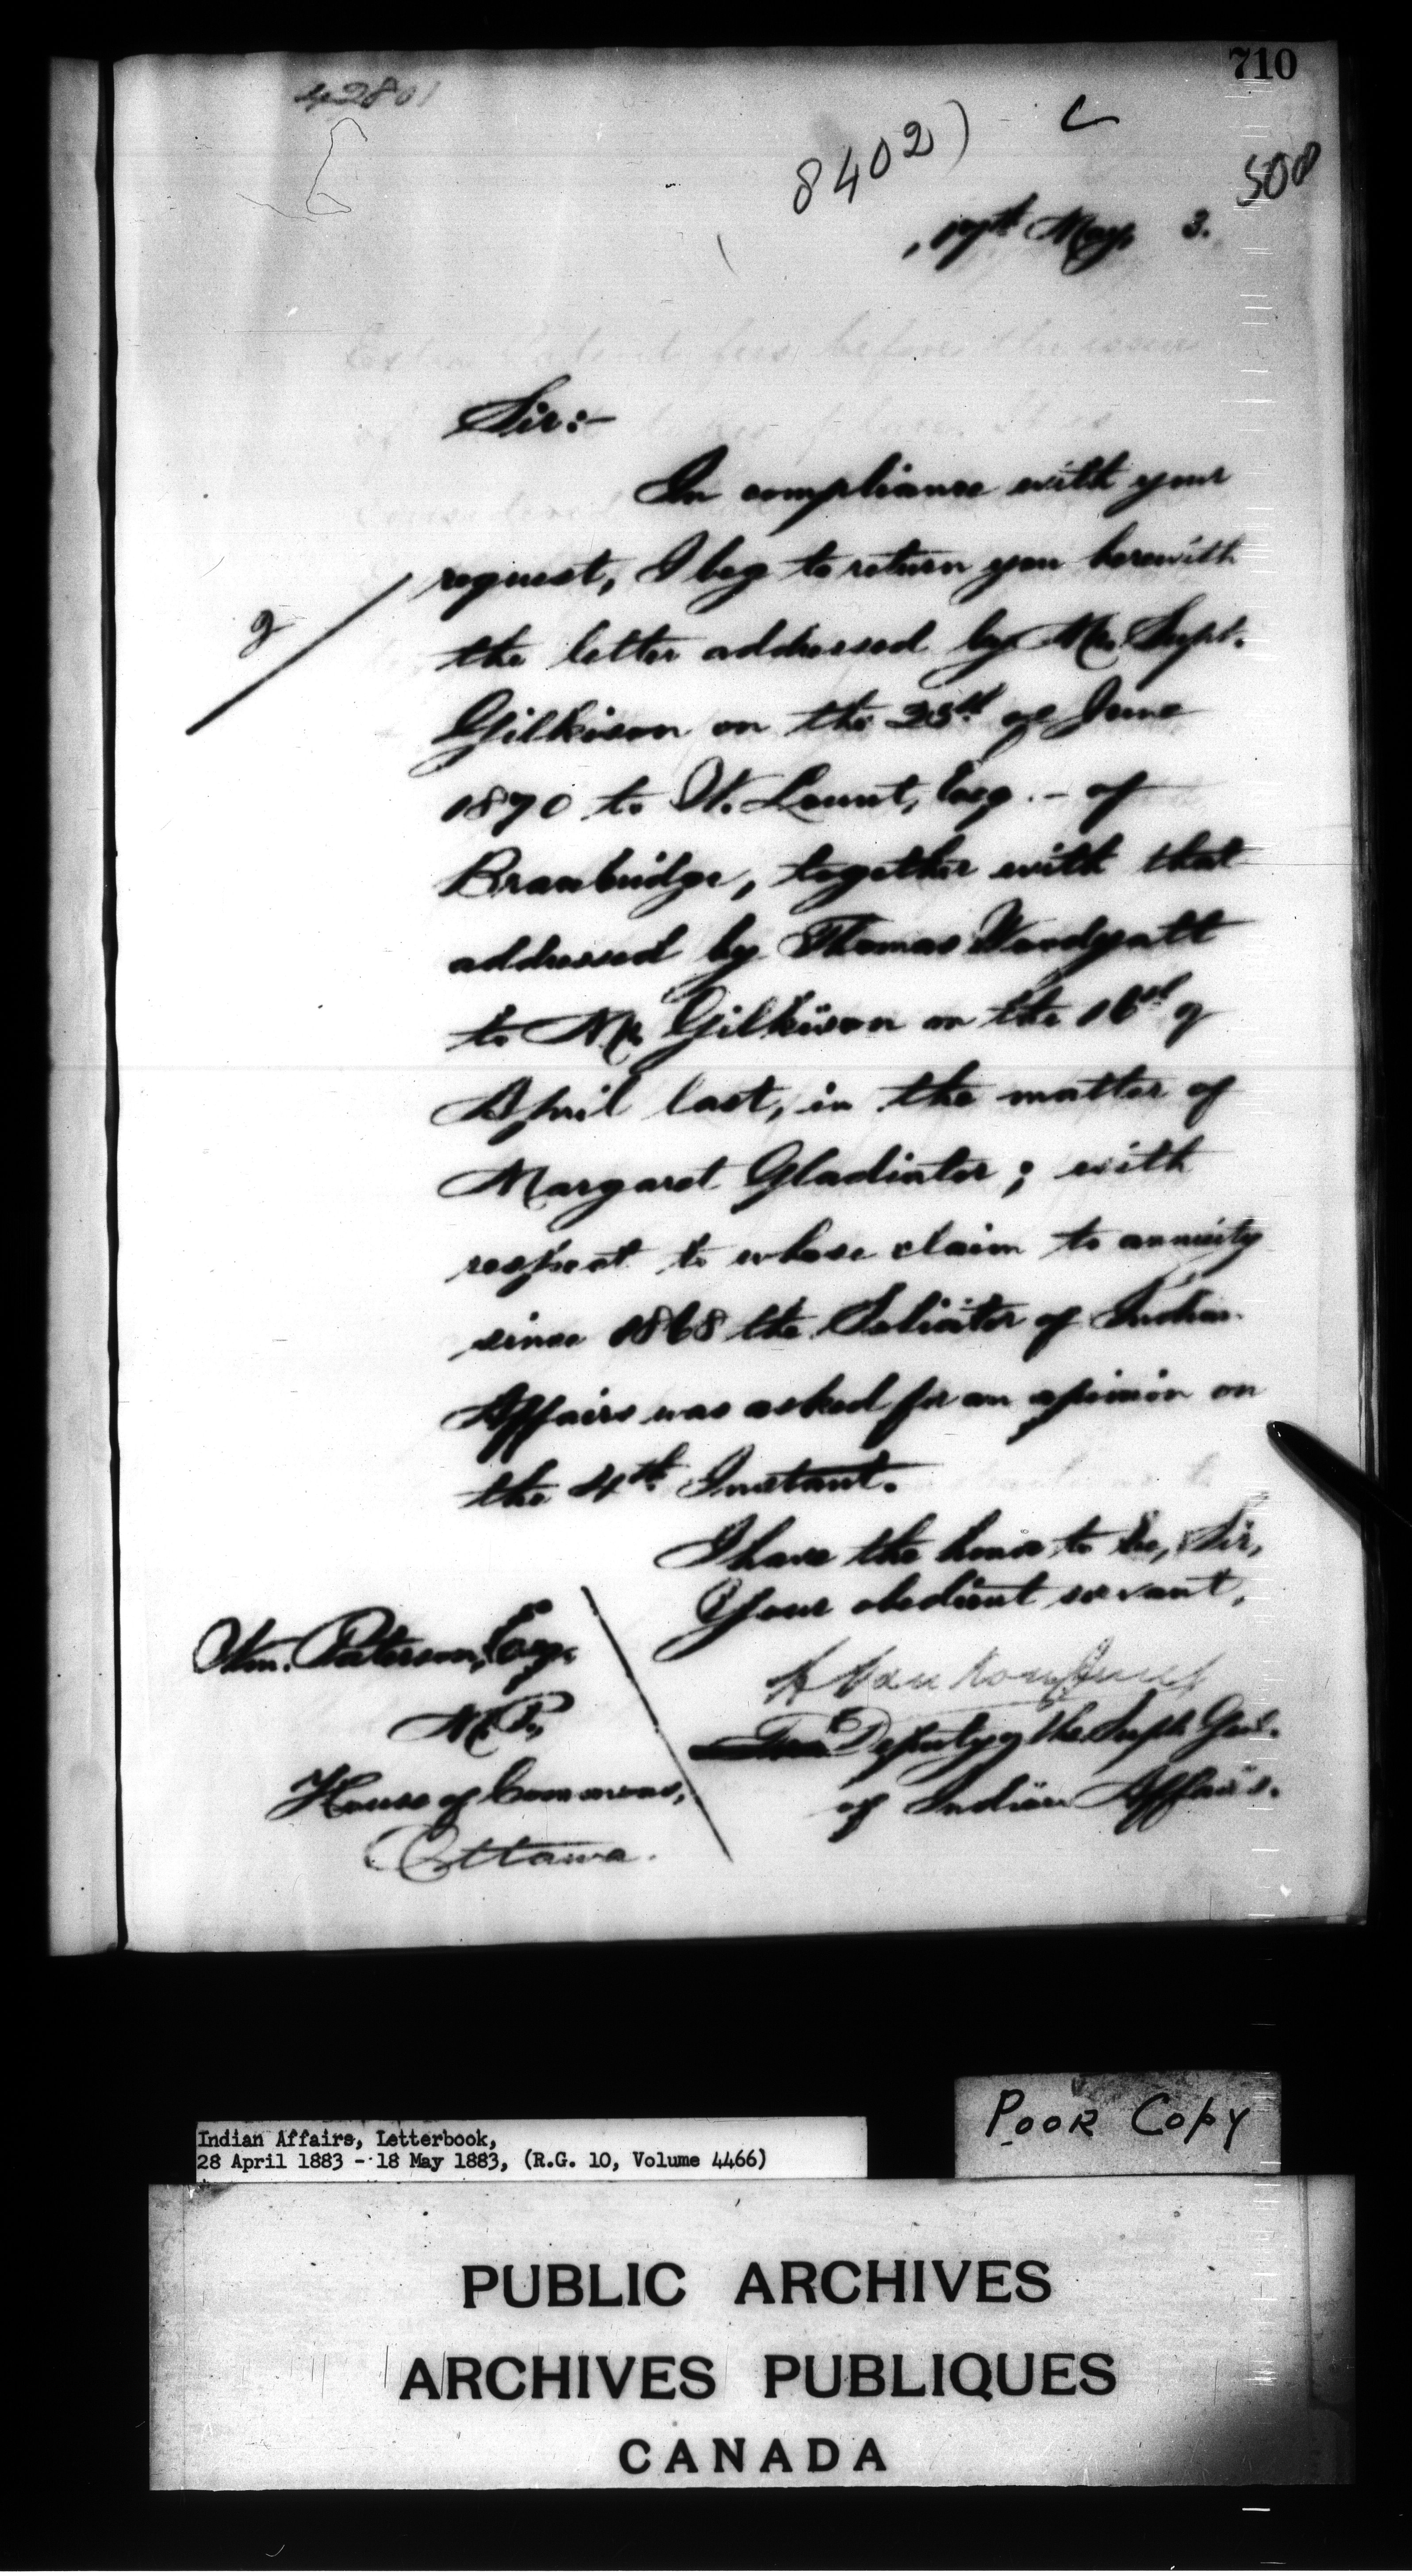 710
42801
8402) C
508
17th May 3.
Sir:-
In compliance with your
request, I beg to return you herewith
2
the letter addressed by Mr. Supt.
Gilkison on the 23rd of June
1870 to W. Lount, Esq. - of
Bracebridge, together with that
addressed by Thomas Woodyatt
to Mr. Gilkison on the 16th of
April last, in the matter of
Margaret Gladiator; with
respect to whose claim to annuity
since 1868 the Solicitor of Indian
Affairs was asked for an opinion on
the 4th Instant.
I have the honor to be, Sir,
Your obedient servant,
L. Vankoughnet
Deputy of the Supt. Genl.
of Indian Affairs.
Wm. Paterson, Esq.
M.P.,
House of Commons,
Ottawa.
Poor Copy
Indian Affairs, Letterbook,
28 April 1883 - 18 May 1883, (R.G. 10, Volume 4466)
PUBLIC ARCHIVES
ARCHIVES PUBLIQUES
CANADA